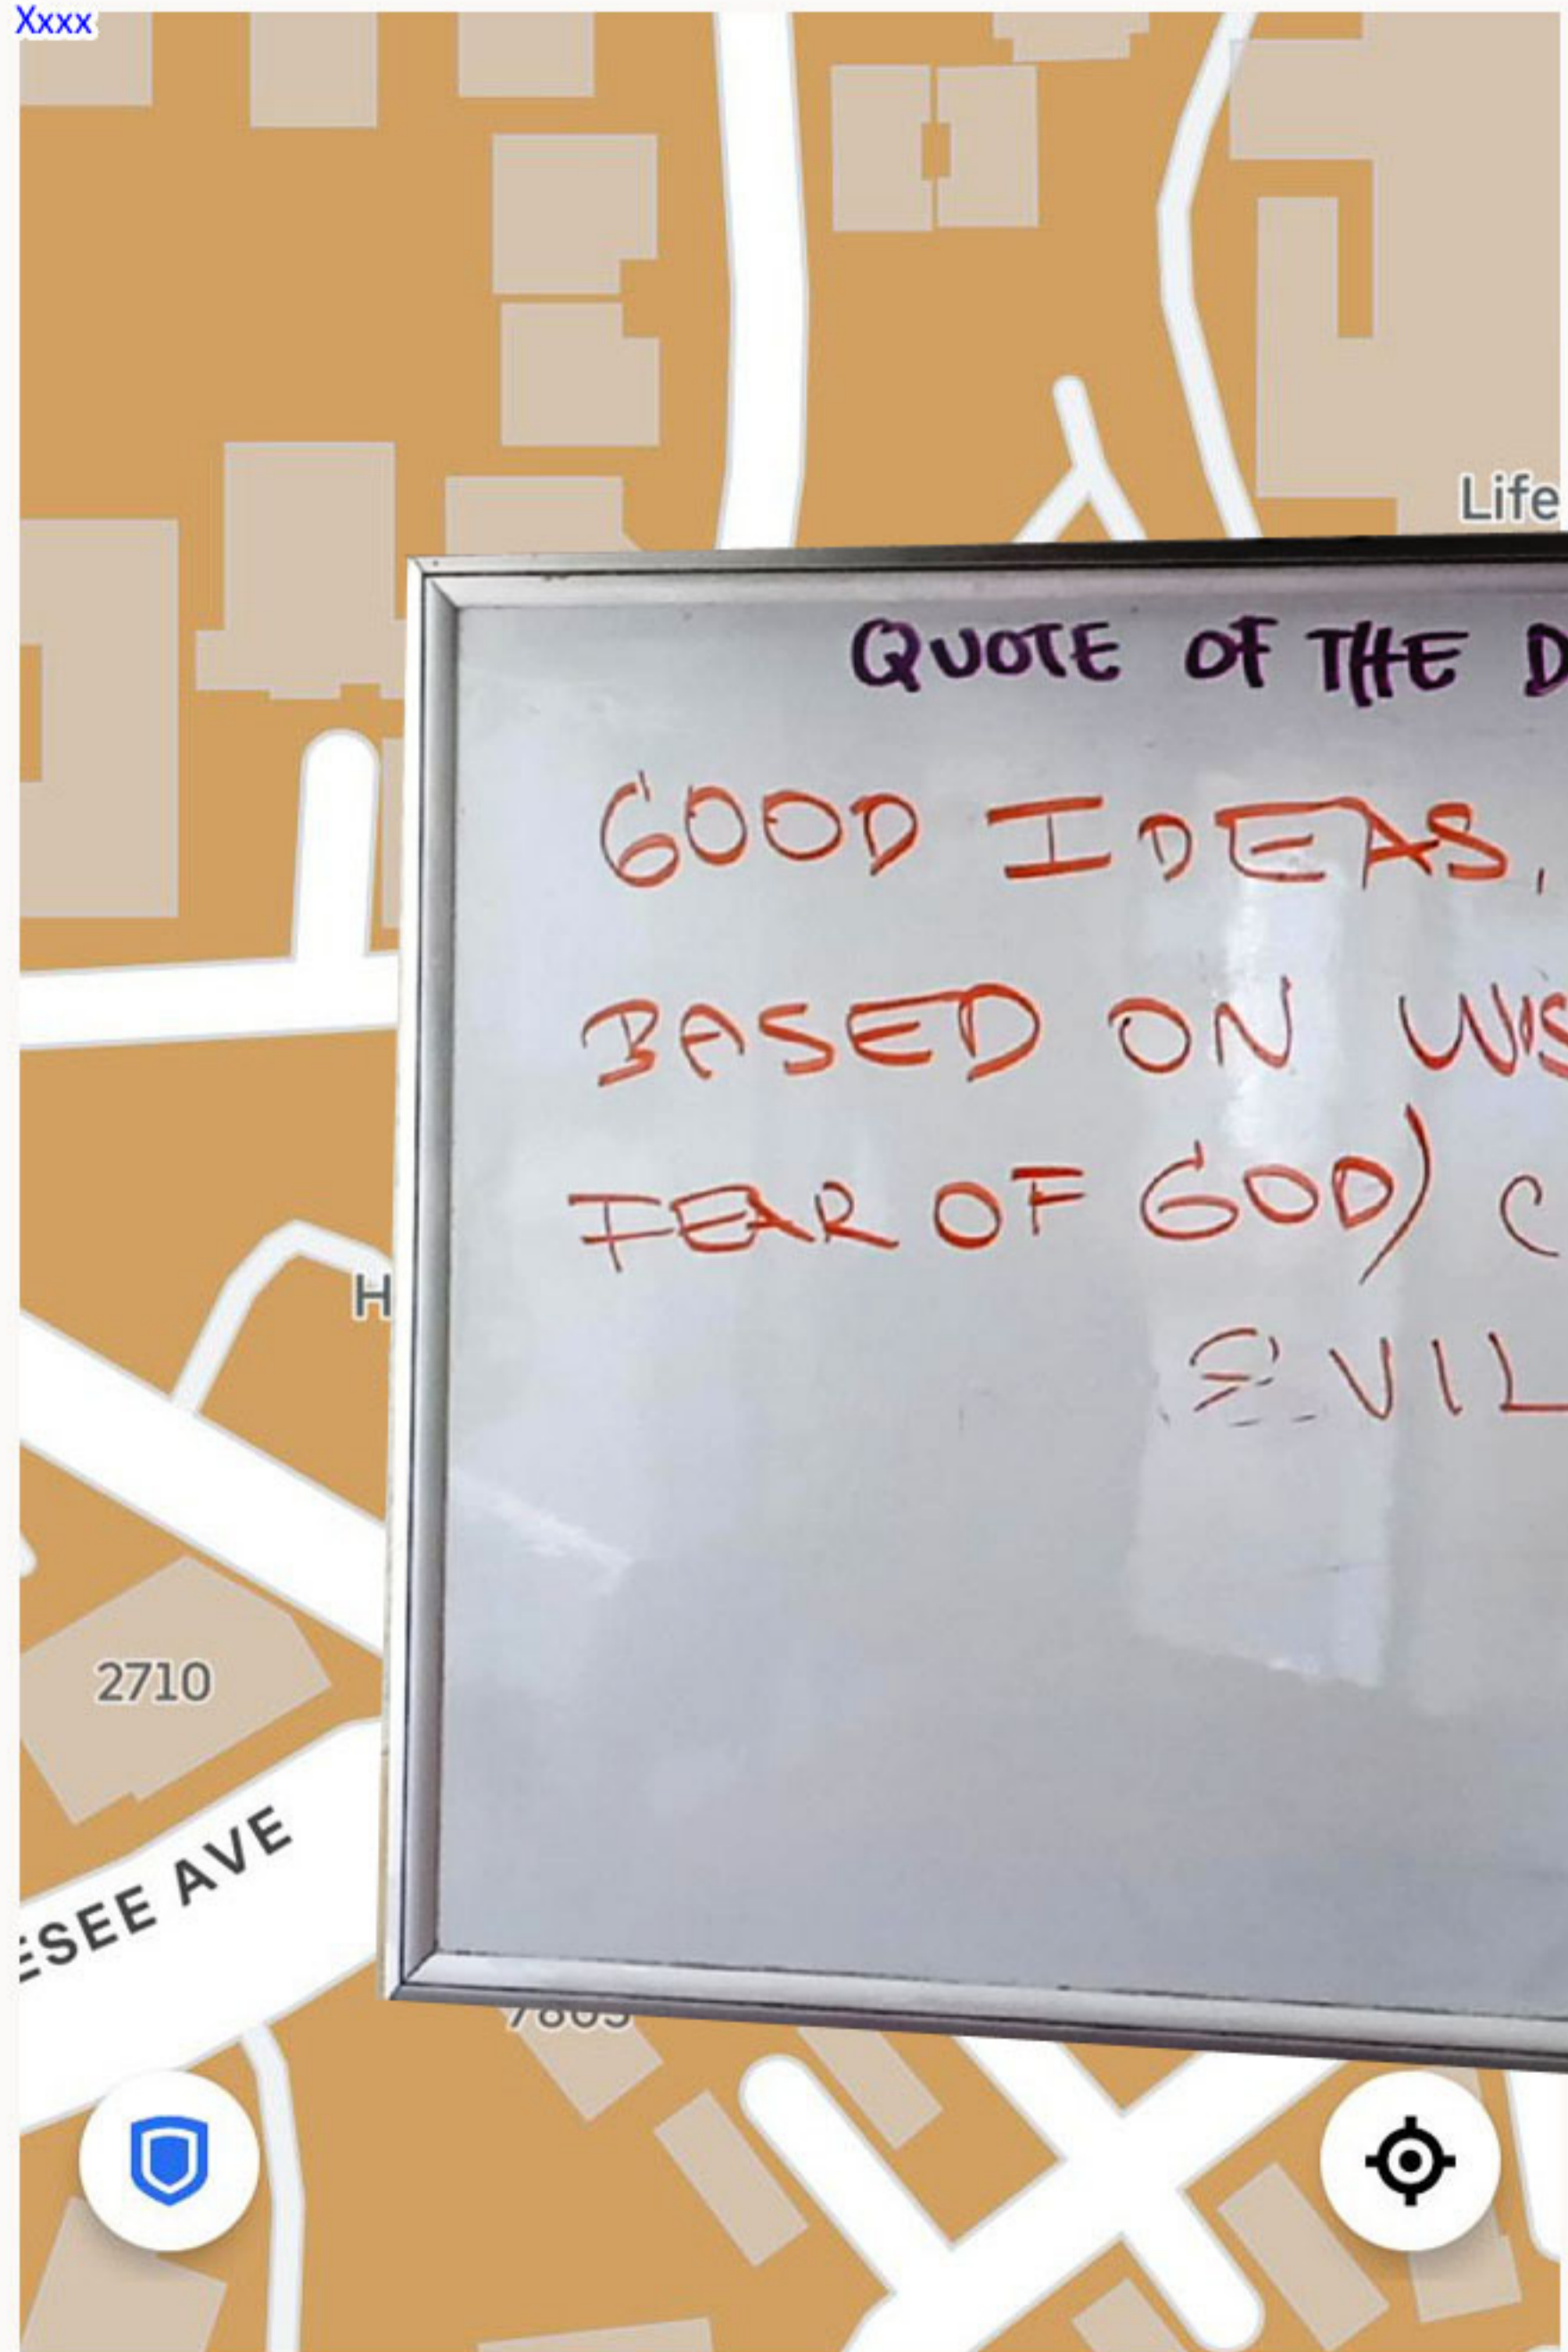 Xxxx
Life
QUOTE OF THE D
GOOD IDEAS,
BASED ON WIS
FEAR OF GOD) C
EVIL
H
2710
ESEE AVE